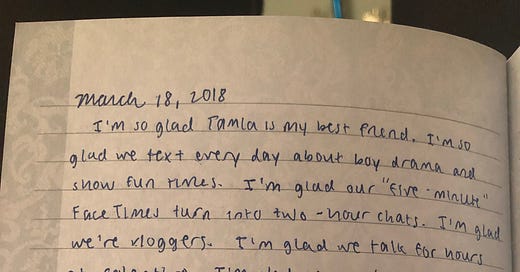 march 18, 2018
I'm so glad Tamla is my best friend. I'm so
glad we text every day about boy drama and
show fun times. I'm glad our "five-minute"
FaceTimes turn into two-hour chats. I'm glad
we're vloggers. I'm glad we talk for hours